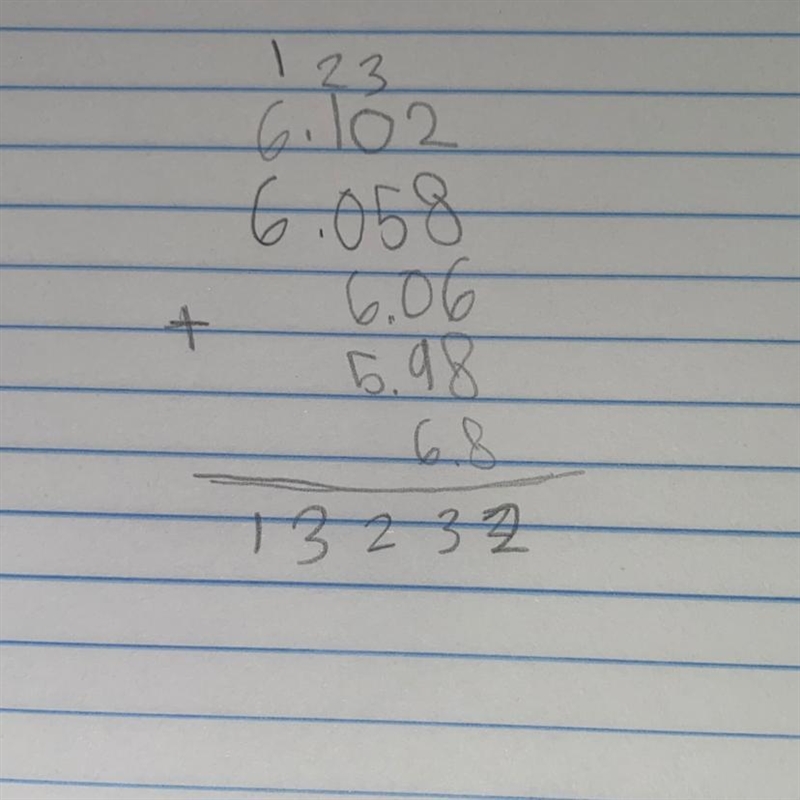 1 23
6.102
6.058
6.06
+
5.98
6.8
13232